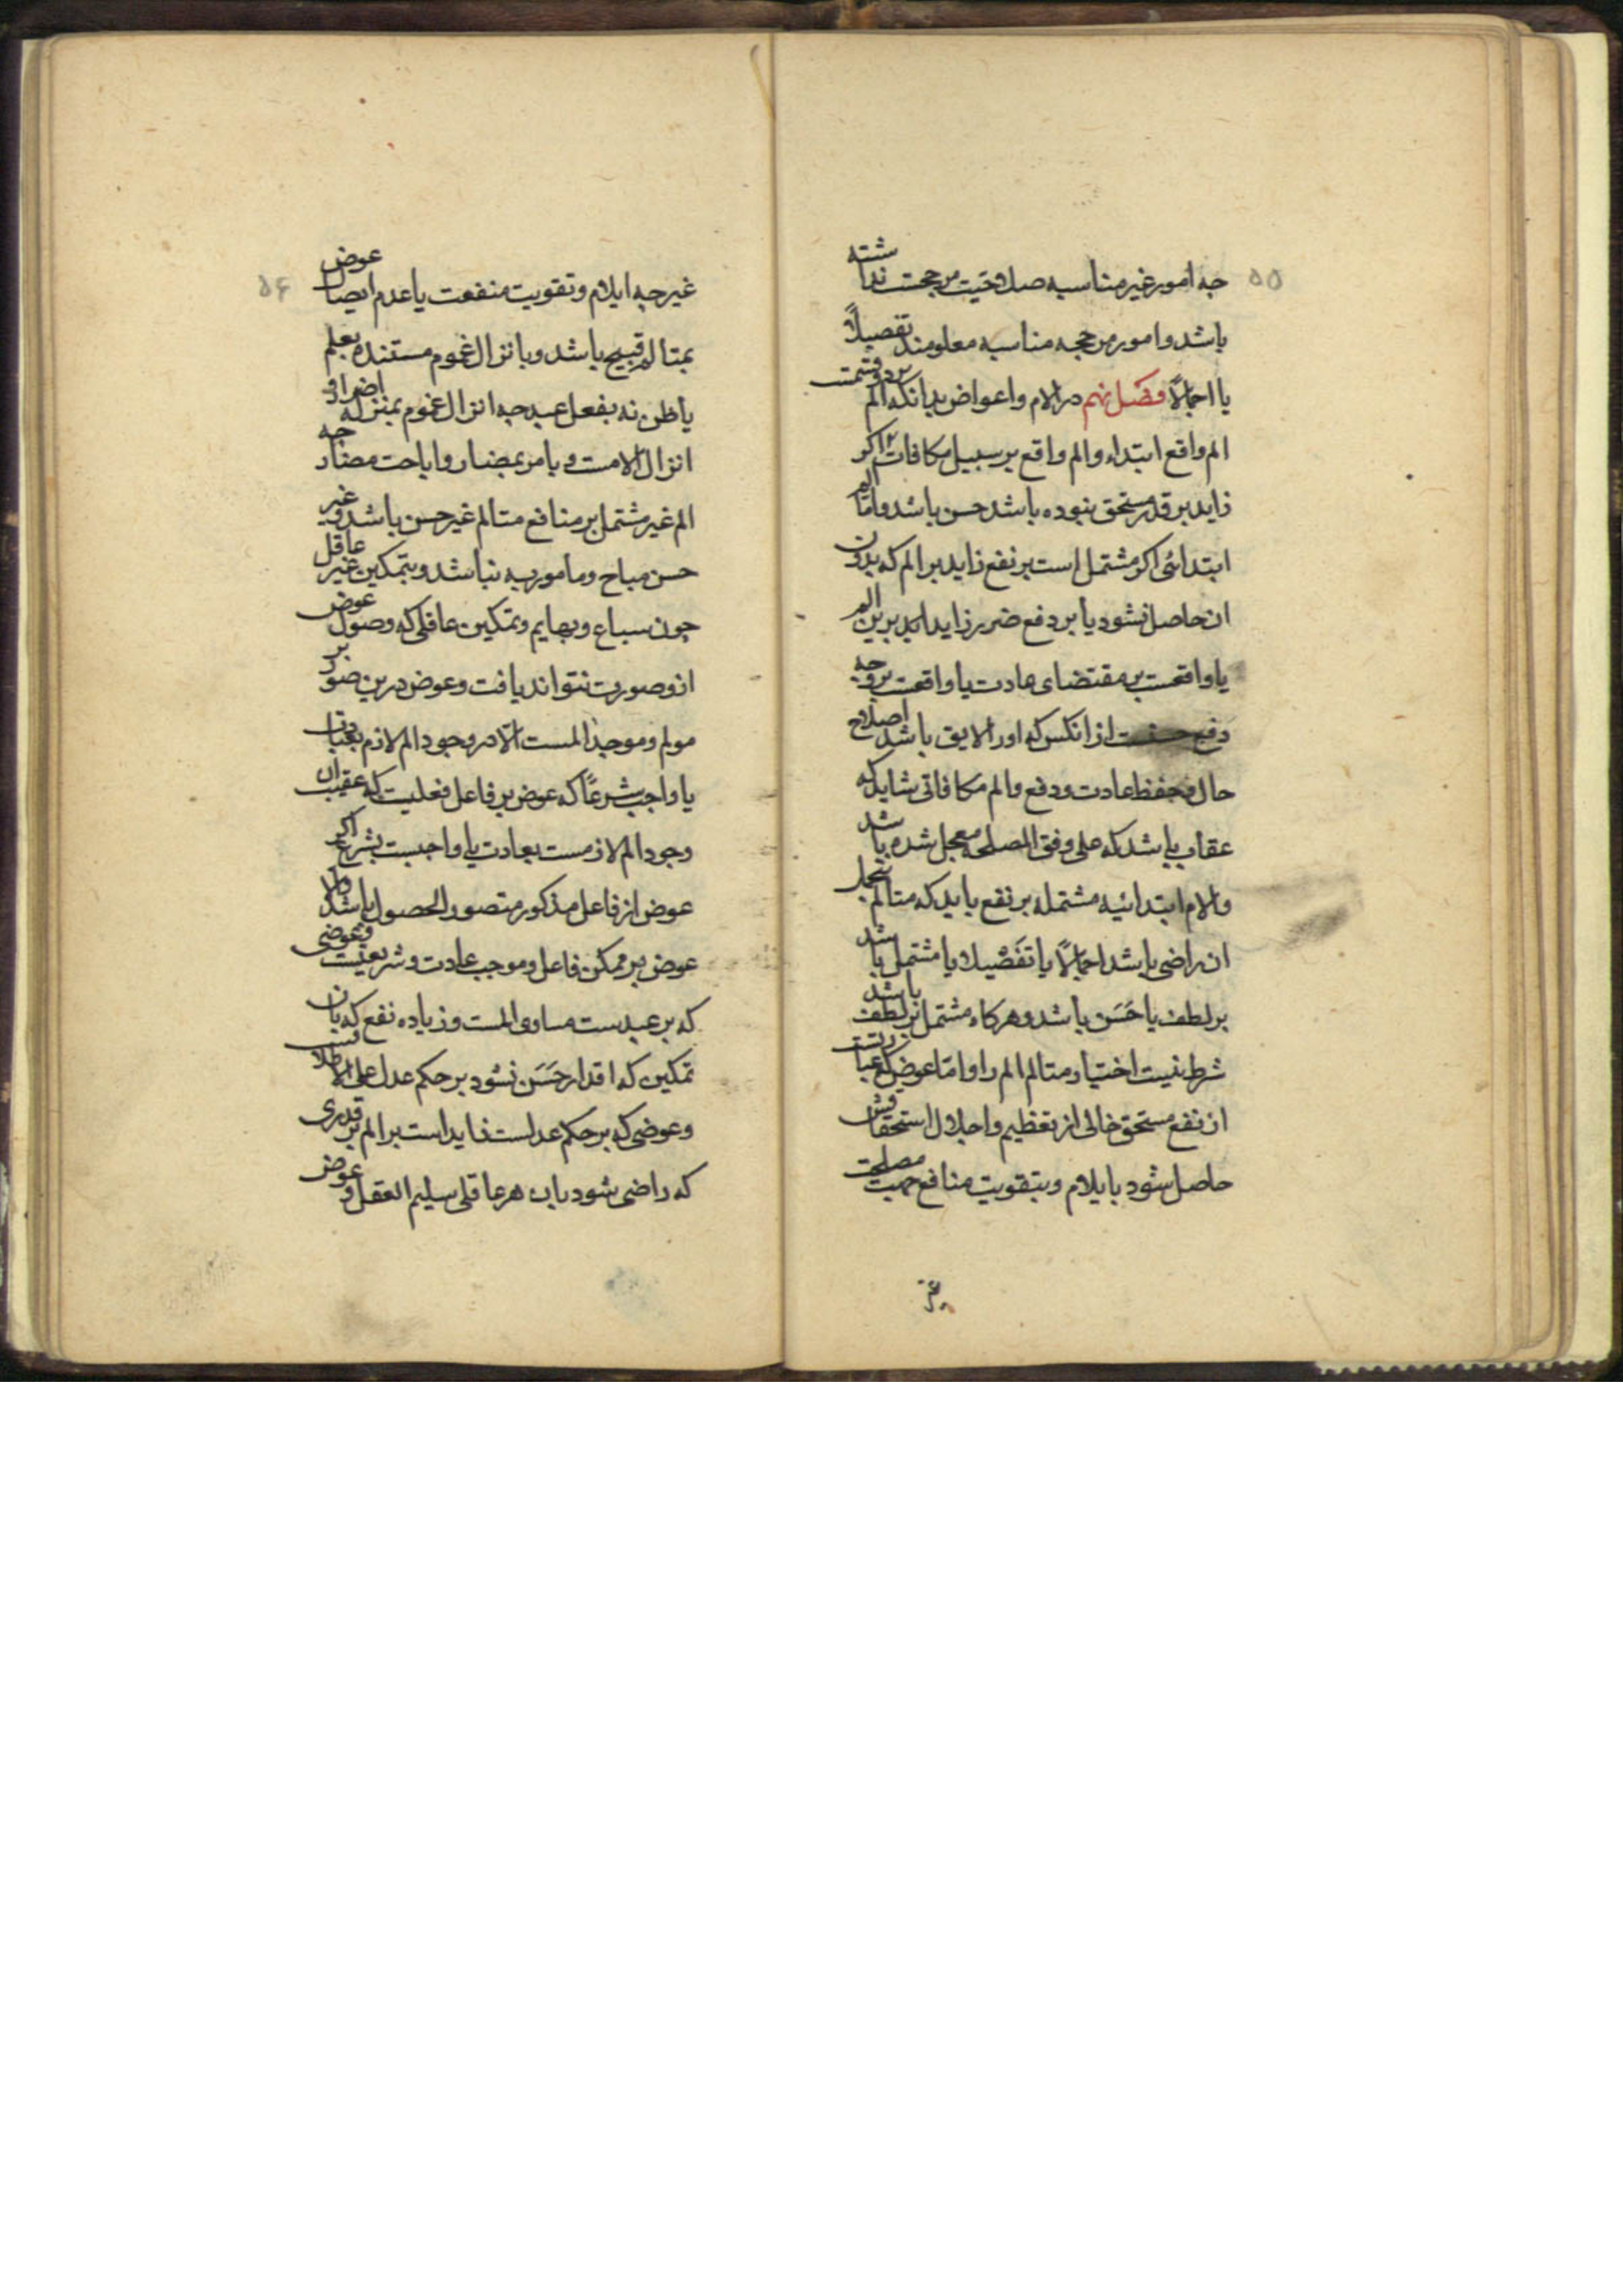 ۵۵
جه امور غیر مناسبه صلاحیت مرجحیت نداشته
باشد و امور مرجحه مناسبه معلومند تفصیلاً
یا اجمالاً فصل نهم در الام و اعواض بدانکه الم بر دو قسمت
الم واقع ابتداء و الم واقع بر سبیل مکافات اگر
زاید بر قدر مستحق نبوده باشد حسن باشد و اما الم
ابتدائی اگر مشتمل است بر نفع زاید بر الم که بدون
ان حاصل نشود یا بر دفع ضرر زاید بر این الم
یا واقعست بر مقتضای عادت یا واقعست بر وجه
دفع از انکس که اورا لایق باشد اصلاح
حال و حفظ عادت و دفع و الم مکافاتی شاید که
عقاب باشد که علی وفق المصلحه معجل شده باشد
والام ابتدائیه مشتمله بر نفع باید که متالم بتحمل
ان راضی باشد اجمالاً یا تفصیلا یا مشتمل باشد
بر لطف یا حَسَن باشد و هر کاه مشتمل بر لطف باشد
شرط نیست اختیار متالم الم را و اما عوض که عبارتست
از نفع مستحق خالی از تعظیم و اجلال استحقاقش
حاصل شود بایلام و بتقویت منافع جهت مصلحت
غیر
۵۶
غیر جه ایلام و تقویت منفعت یا عدم ایصال عوض
بمتالم قبیح باشد و بانزال غموم مستنده بعلم
یا ظن نه بفعل عبد جه انزال غموم بمنزله اضرار و
انزال الامست و بامر بمضار و اباحت مضار جه
الم غیر مشتمل بر منافع متالم غیر حسن باشد و غیر
حسن مباح و مامور به نباشد و بتمکین غیر عاقل
چون سباع و بهایم و تمکین عاقلی که وصول عوض
ازو صورت نتواند یافت و عوض درین صور بر
مولم و موجد المست الا در وجود الم لازم بعادت
یا واجب شرعاً که عوض بر فاعل فعلیت که عقیب ان
وجود الم لازمست بعادت یا واجبست بشرع اگر
عوض از فاعل مذکور متصور الحصول باشد والا
عوض بر ممکن فاعل و موجب عادت و شریعتست و عوضی
که بر عبدست مساوی المست و زیاده نفع که بان
تمکین که اقدار حَسَن نشود بر حکم عدل علی الاطلاقست
و عوضی که بر حکم عدلست زاید است بر الم بر قدری
که راضی شود بان هر عاقلی سلیم العقل و عوض